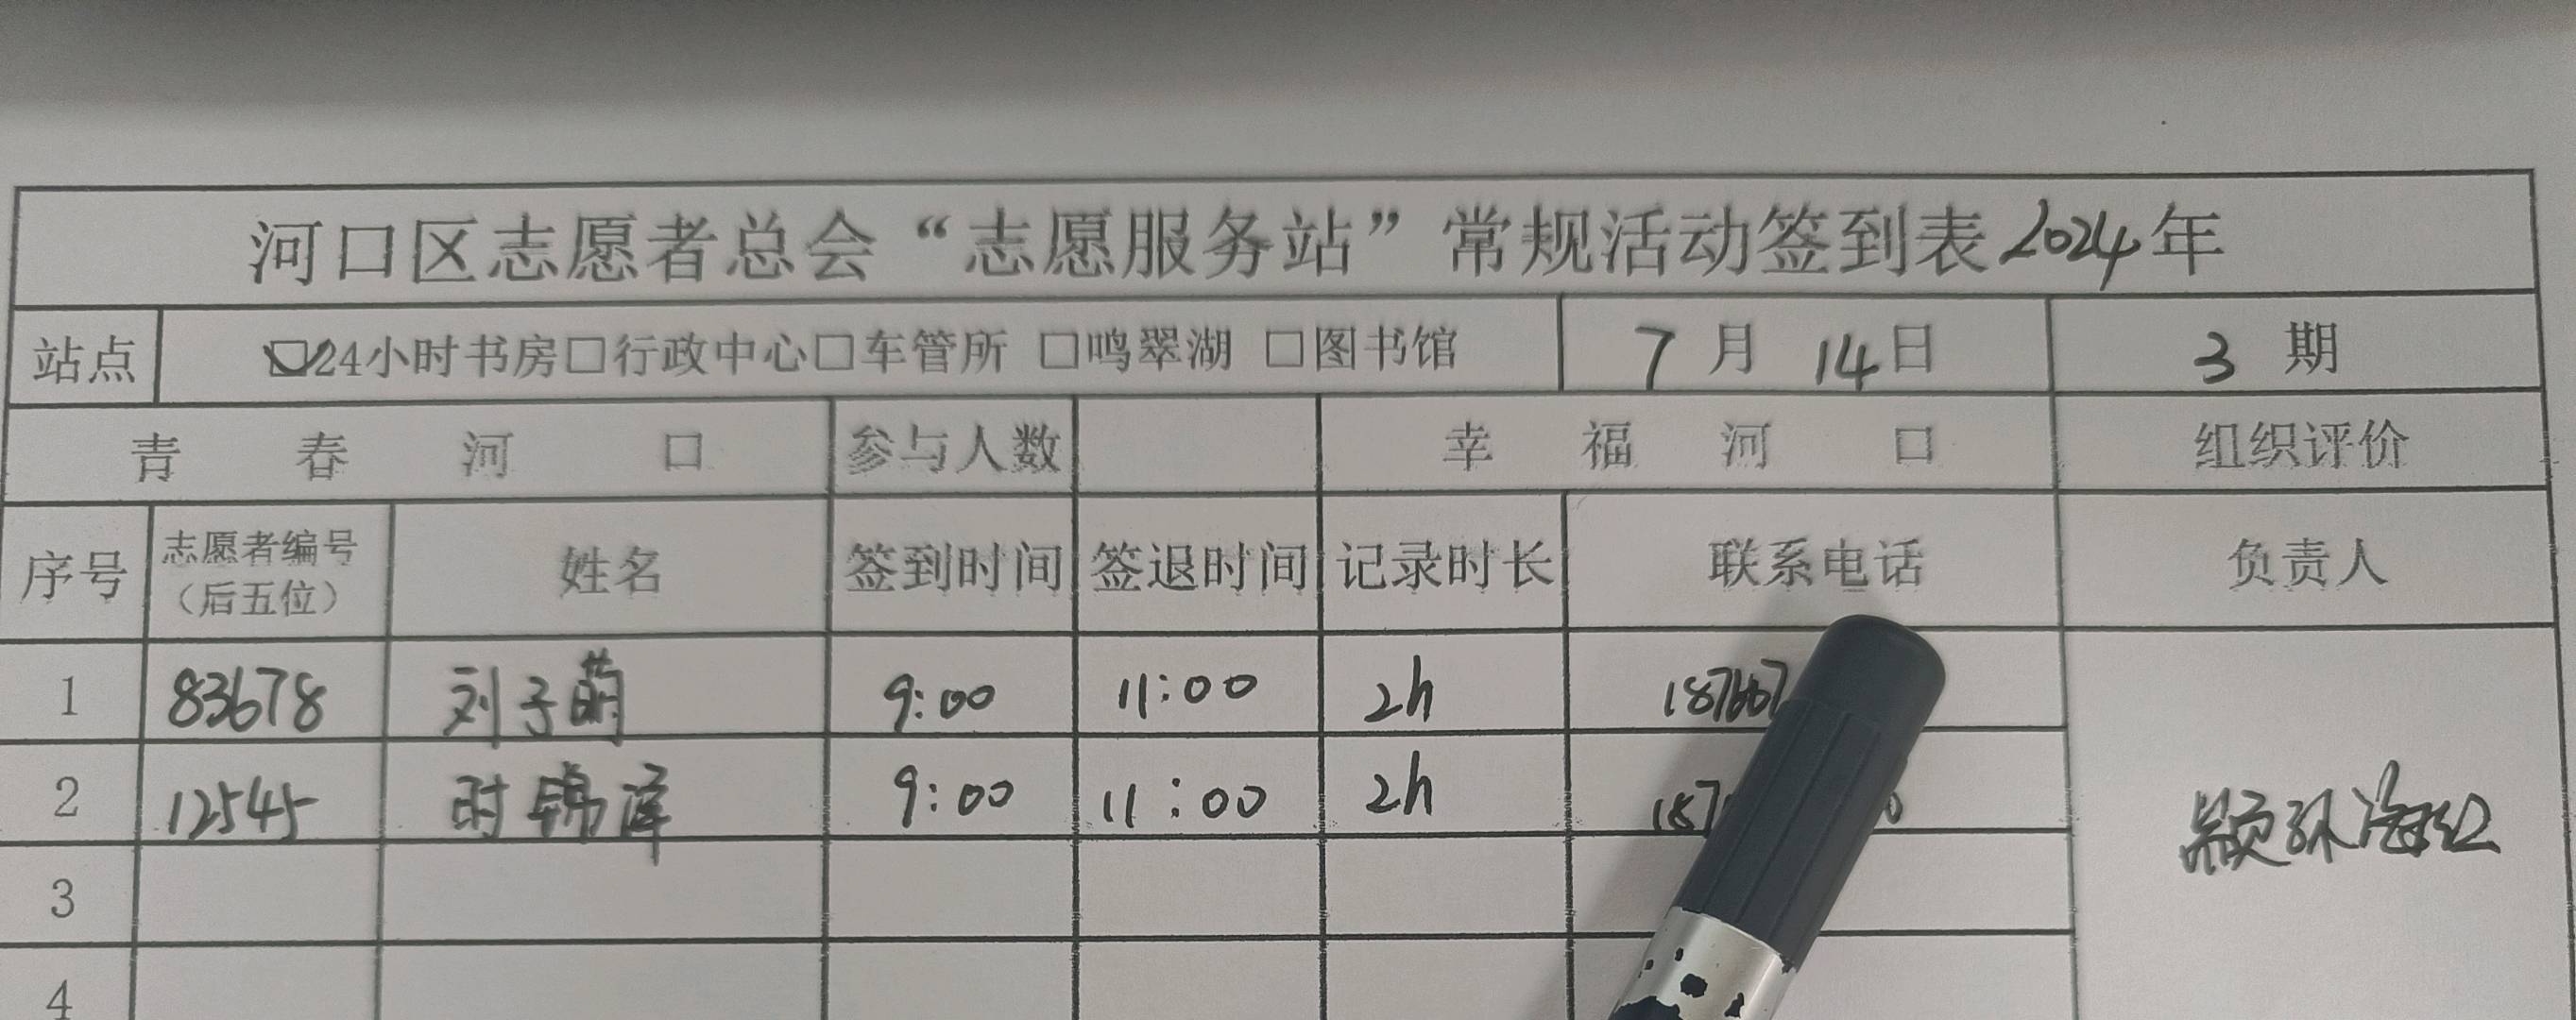 河口区志愿者总会“志愿服务站”常规活动签到表2024年
站点 ☑24小时书房□行政中心□车管所 □鸣翠湖 □图书馆 7月14日 3期
青春河口 参与人数 幸福河口 组织评价
序号 志愿者编号（后五位） 姓名 签到时间 签退时间 记录时长 联系电话 负责人
1 83678 刘子萌 9:00 11:00 2h 187667
2 12545 时锦泽 9:00 11:00 2h 187
颛孙海红
3
4